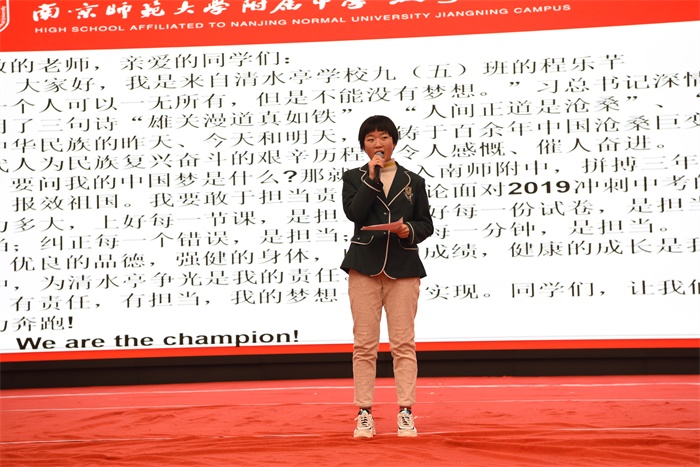 南京师范大学附属中学
HIGH SCHOOL AFFILIATED TO NANJING NORMAL UNIVERSITY JIANGNING CAMPUS
的老师，亲爱的同学们：
大家好，我是来自清水亭学校九（五）班的程乐芊
一个人可以一无所有，但是不能没有梦想。”习总书记深情
了三句诗“雄关漫道真如铁” “人间正道是沧桑”、
中华民族的昨天、今天和明天， 铸于百余年中国沧桑巨变
人为民族复兴奋斗的艰辛历程 令人感慨、催人奋进。
要问我的中国梦是什么?那就 入南师附中，拼搏三年
报效祖国。我要敢于担当责 论面对2019冲刺中考的
多大，上好每一节课，是担 好每一份试卷，是担当
；纠正每一个错误，是担当； 每一分钟，是担当。
优良的品德，强健的身体， 成绩，健康的成长是我
，为清水亭争光是我的责任
有责任，有担当，我的梦想 实现。同学们，让我们
奔跑!
We are the champion!